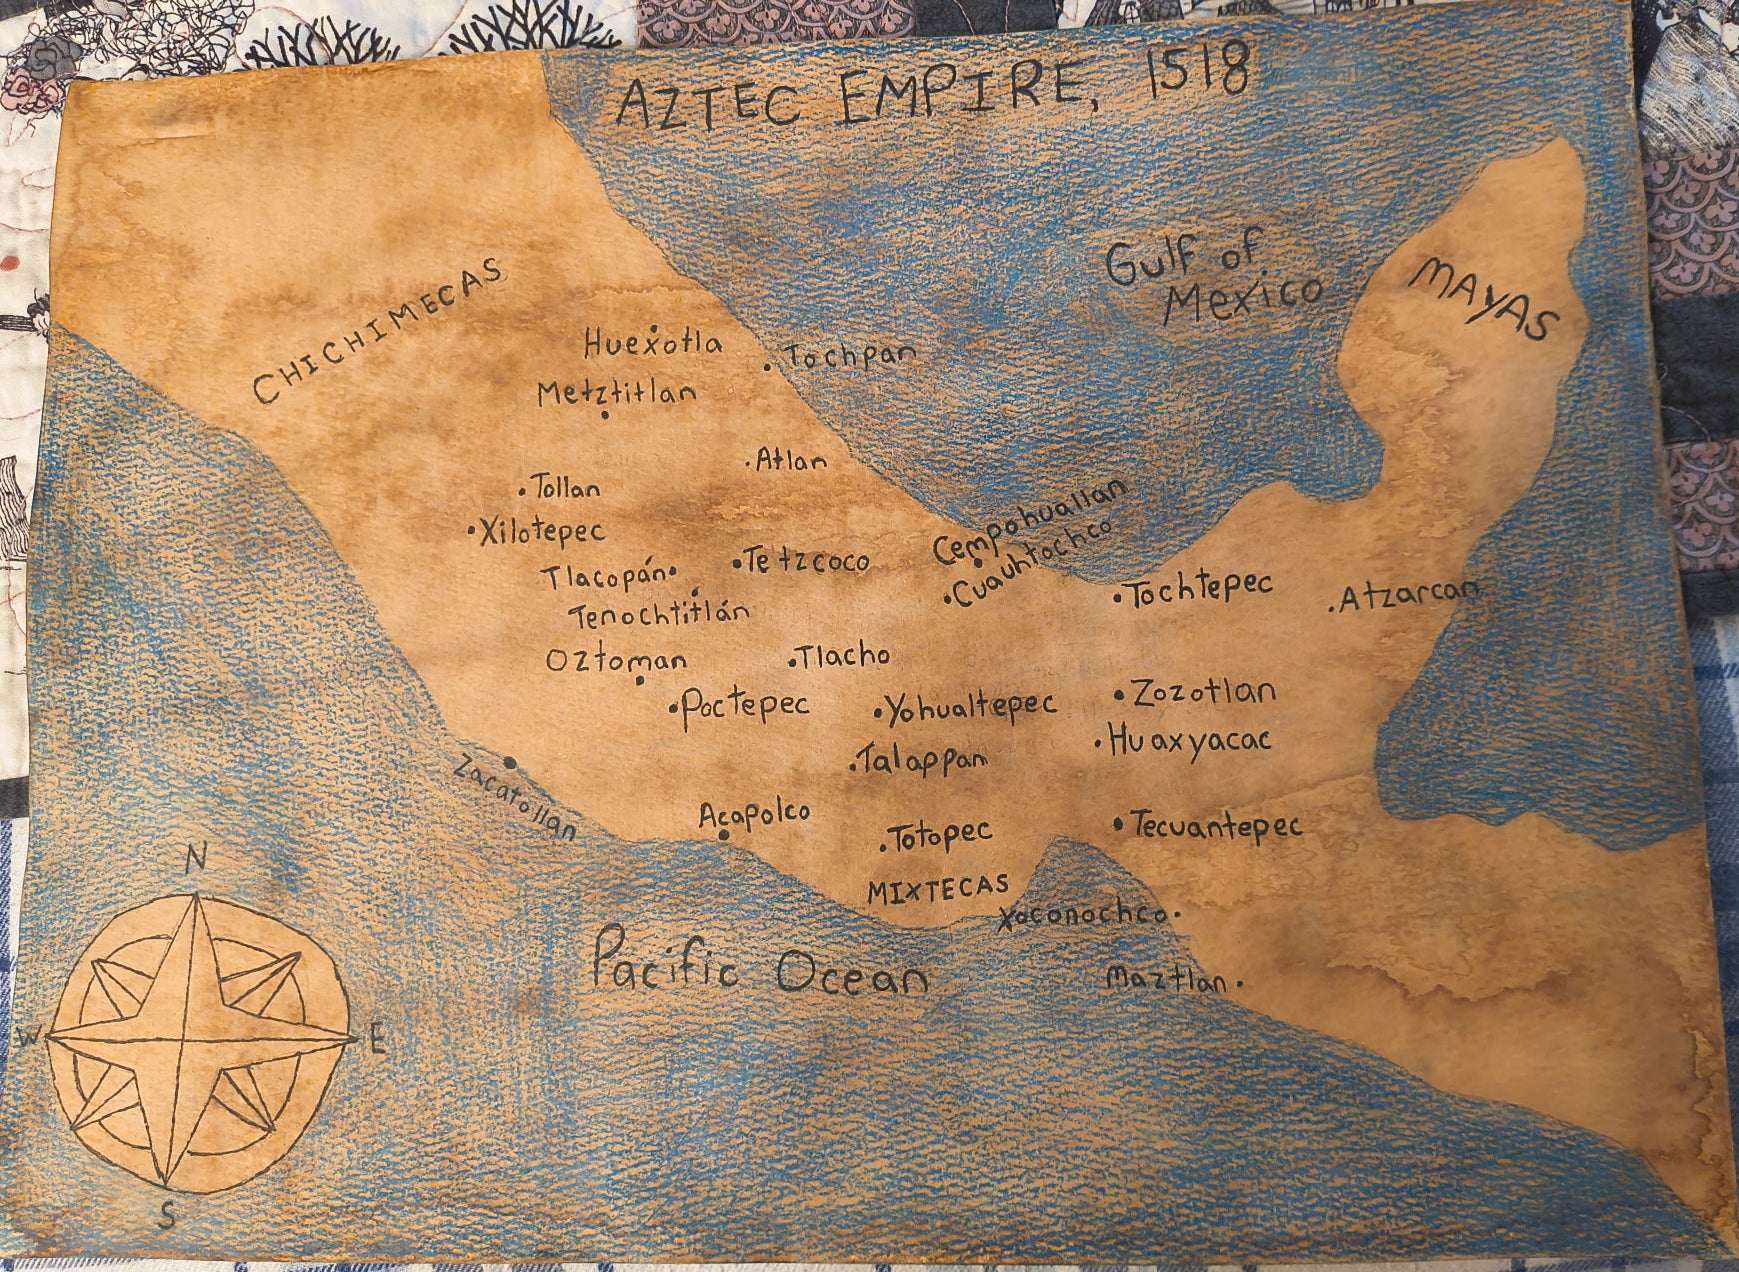 AZTEC EMPIRE, 1518
Gulf of
Mexico
MAYAS
CHICHIMECAS
Huexotla
Tochpan
Metztitlan
Atlan
Tollan
Xilotepec
Cempohuallan
Cuauhtochco
Tlacopán
Tetzcoco
Tenochtitlán
Tochtepec
Atzarcan
Oztoman
Tlacho
Poctepec
Yohualtepec
Zozotlan
Talappan
Huaxyacac
Zacatollan
Acapolco
Totopec
Tecuantepec
MIXTECAS
Xoconochco
Maztlan
Pacific Ocean
N
W
E
S